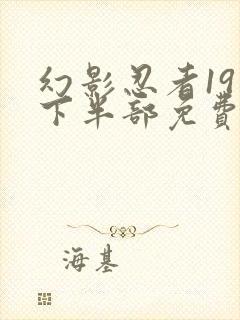 幻影忍者19
下半部免費
海基